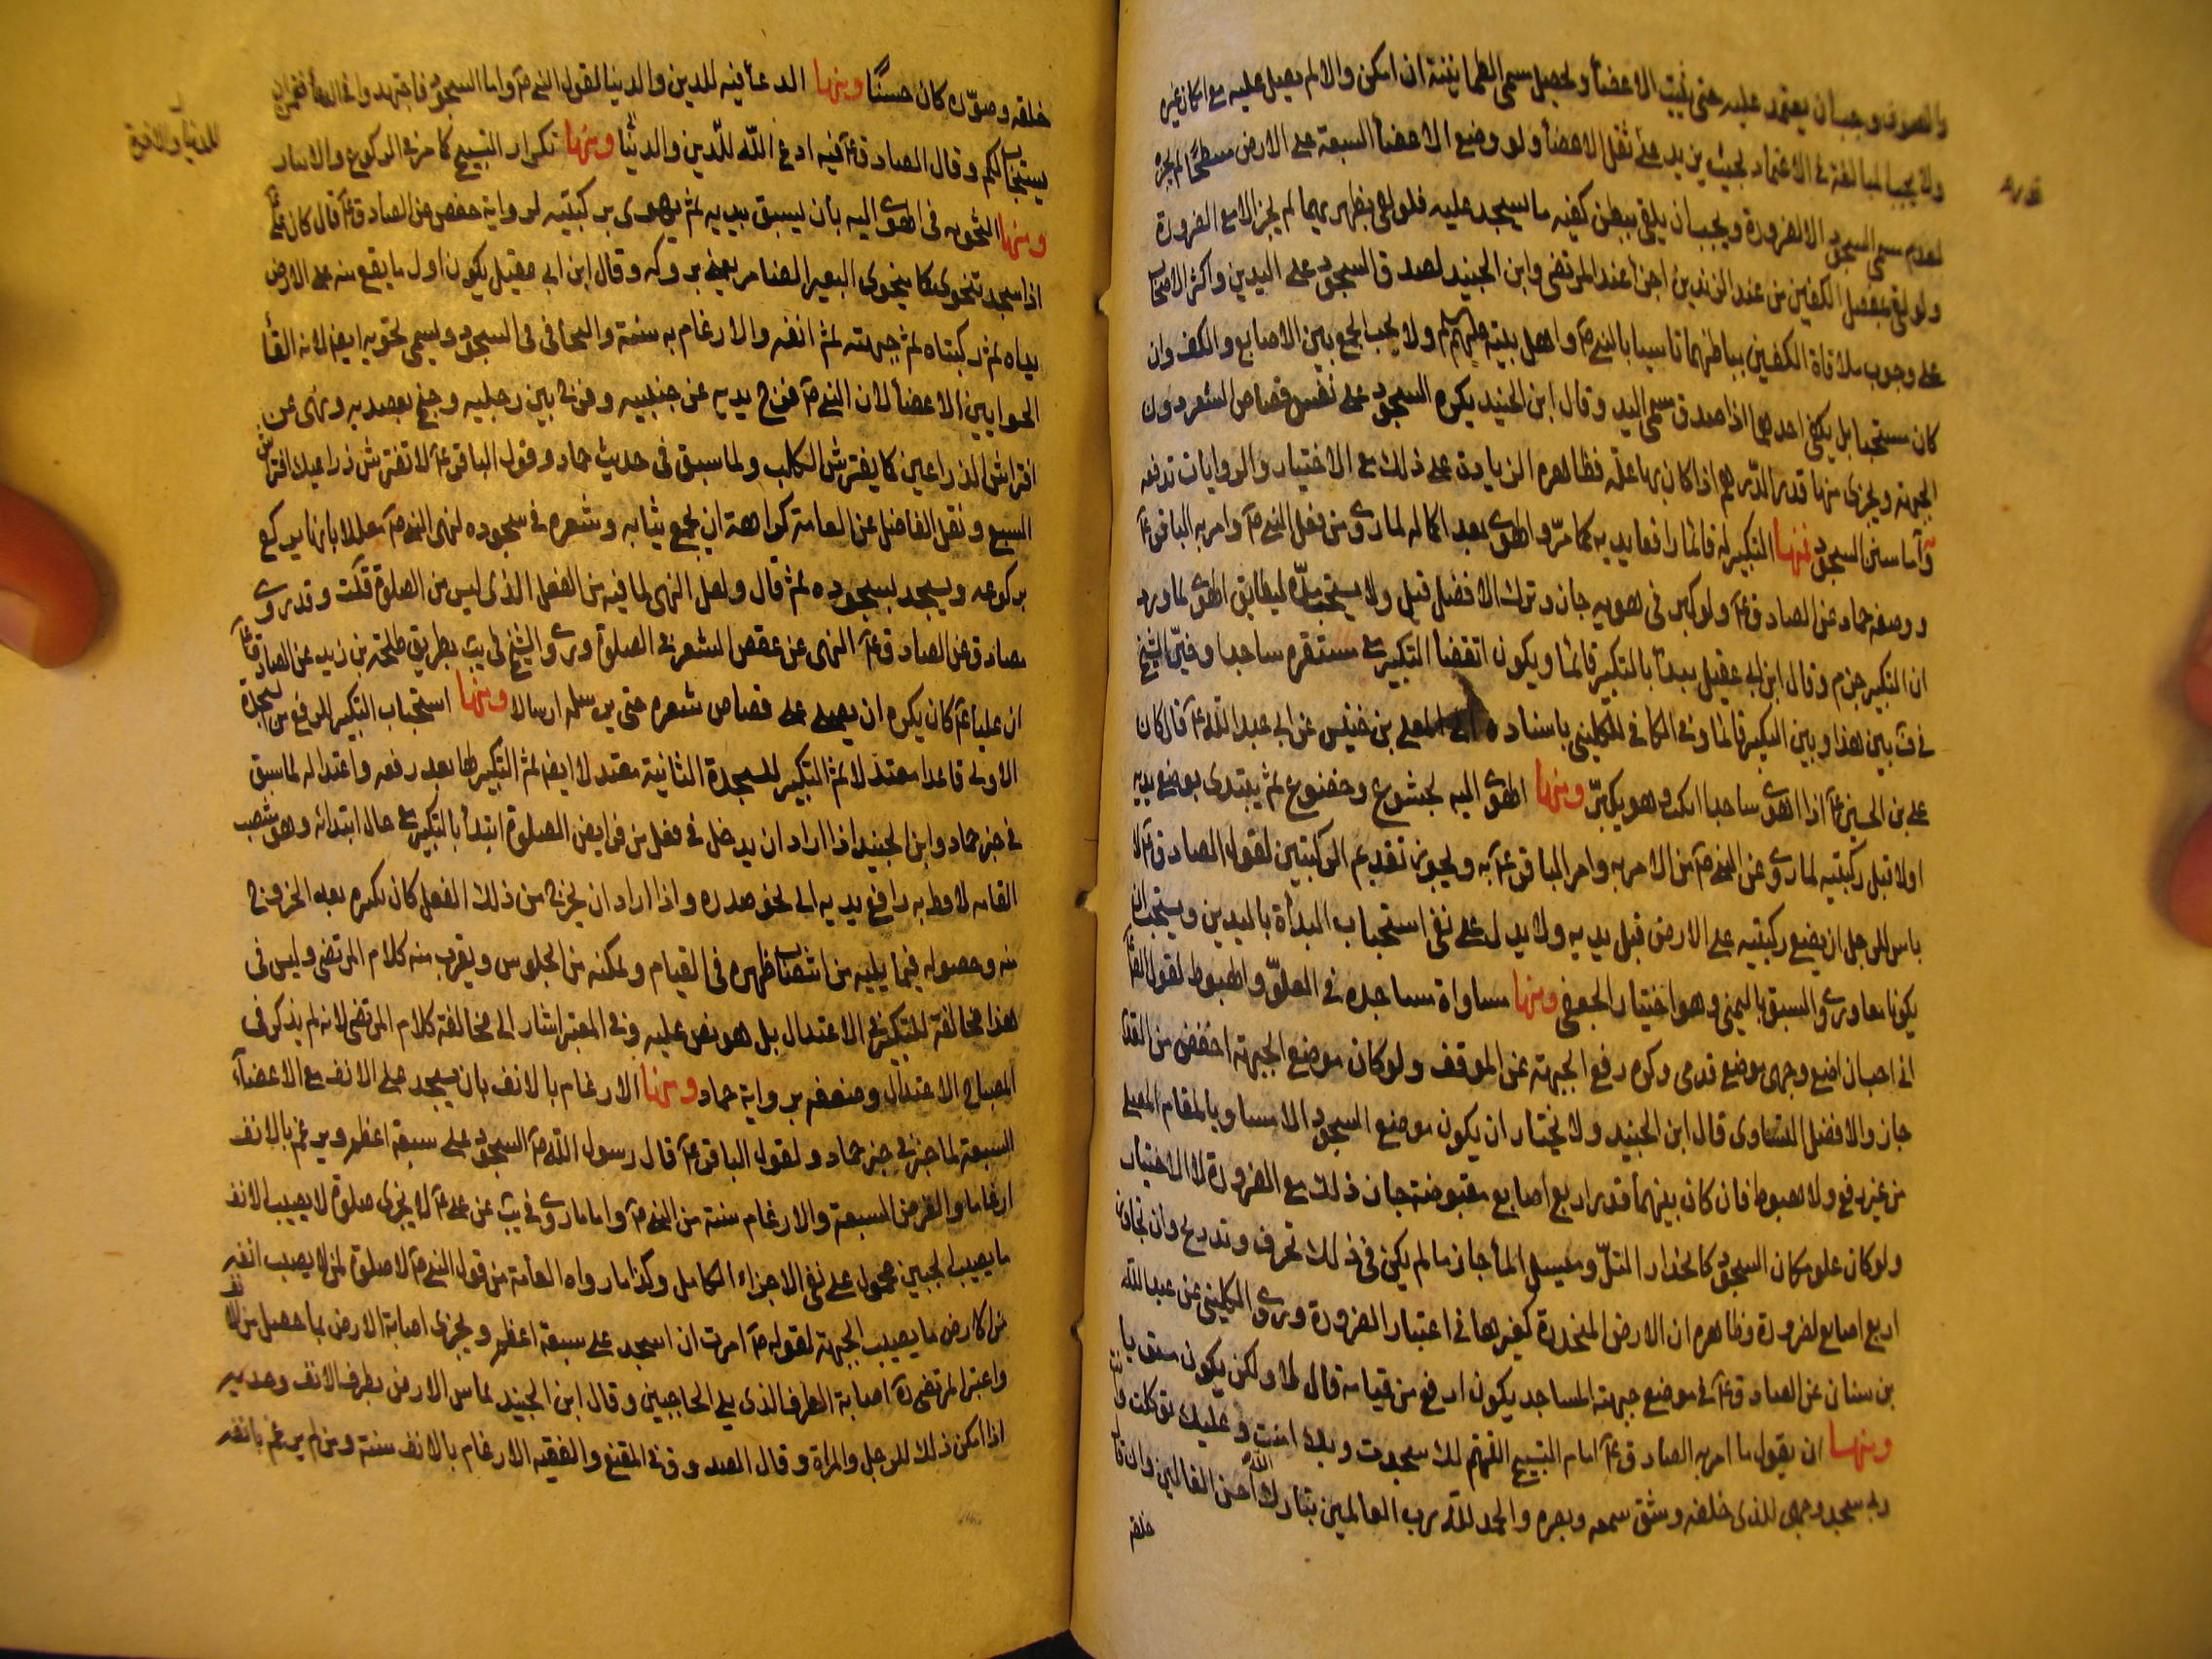 والصوف وجب ان يعتمد عليه حتى يثبت الاعضأ ويحصل مسمى الطمانينة ان امكن والا لم يصل عليه مع امكان غيره
ولا يجب المبالغة في الاعتماد بحيث يزيد على ثقل الاعضأ ولو وضع الاعضأ السبعة على الارض منبطحًا لم يجزه
لعدم مسمى السجود الا لضرورة ويجب ان يلقى ببطن كفيه ما يسجد عليه فلو لقى بظهريهما لم يجز الا مع الضرورة
ولو لقى بمفصل الكفين من عند الزندين اجزأ عند المرتضى وابن الجنيد لصدق السجود على اليدين واكثر الاصحاب
على وجوب ملاقاة الكفين بباطنهما تاسيا بالنبي ص واهل بيته عليهم السلم ولا يجب الجمع بين الاصابع والكف وان
كان مستحبا بل يكفي احدهما اذا صدق مسمى اليد وقال ابن الجنيد يكره السجود على نفس قصاص الشعر دون
الجبهة ويجزي منها قدر الدرهم اذا كان بها علة فظاهره الزيادة على ذلك مع الاختيار والروايات تدفعه
وأما سنن السجود فمنها التكبير له قائما رافعا يديه كما مرّ والهوى بعد اكماله لما روى من فعل النبي ص وامر به الباقر ع
ووصفه حماد عن الصادق ع ولو كبر في هويه جاز وترك الافضل قيل ولا يستحب مدّه ليطابق الهوى لما ورد
ان التكبير جزم وقال ابن ابي عقيل يبدأ بالتكبير قائما ويكون انقضأ التكبير مع مستقره ساجدا وخيّر الشيخ
في ف بين هذا وبين التكبير قائما وفي الكافي للكليني باسناده الى المعلى بن خنيس عن ابي عبد الله ع قال كان
علي بن الحسين ع اذا اهوى ساجدا انكب وهو يكبّر ومنها الهوى اليه بخشوع وخضوع ثم يبتدي بوضع يديه
اولا قبل ركبتيه لما روى عن النبي ص من الامر به وامر الباقر ع به ويجوز تقديم الركبتين لقول الصادق ع لا
باس للرجل ان يضع ركبتيه على الارض قبل يديه ولا يدل على نفى استحباب البدأة باليدين ويستحب ان
يكونا معا وروى السبق باليمنى وهو اختيار الجعفي ومنها مساواة مساجده في العلوّ والهبوط لقول الصأ
اني احب ان اضع وجهى موضع قدمى وكره رفع الجبهة عن الموقف ولو كان موضع الجبهة اخفض من القد
جاز والافضل التساوى قال ابن الجنيد ولا نختار ان يكون موضع السجود الا مساويا لمقام المصلى
من غير رفع ولا هبوط فان كان بينهما قدر اربع اصابع مقبوضة جاز ذلك مع الضرورة لا الاختيار
ولو كان علو مكان السجود كانحدار التلّ ومسيل المأ جاز ما لم يكن في ذلك تحرف وتدريج وان تجاوز
اربع اصابع لضرورة وظاهره ان الارض المنحدرة كغيرها في اعتبار الضرورة وروى الكليني عن عبد الله
بن سنان عن الصادق ع في موضع جبهة الساجد يكون ارفع من قيامه قال لا ولكن يكون مستويا
ومنها ان يقول ما امر به الصادق ع امام التسبيح اللهم لك سجدت وبك امنت وعليك توكلت وانت
ربي سجد وجهى للذى خلقه وشق سمعه وبصره والحمد لله رب العالمين تبارك الله احسن الخالقين وان قال
خلقه
خلقه وصوّره كان حسنًا ومنها الدعأ فيه للدين والدنيا لقول النبي ص واما السجود فاجتهدوا في الدعأ فقمن ان
يستجاب لكم وقال الصادق ع فيه ادع الله للدين والدنيا ومنها تكرار التسبيح كما مر في الركوع والاذكار
للدنيا والاخرة
ومنها التخويه في الهوى اليه بان يسبق بيديه ثم يهوى بركبتيه لرواية حفص عن الصادق ع قال كان علي ع
اذا سجد تتخوى كما يتخوى البعير الضامر يعنى بروكه وقال ابن ابي عقيل يكون اول ما يقع منه على الارض
يداه ثم ركبتاه ثم جبهته ثم انفه والارغام به سنة والتجافى في السجود ويسمى تخويه ايضا لانه القأ
الخوا بين الاعضأ لان النبي ص فرج يديه عن جنبيه وفرج بين رجليه وجنح بعضديه ونهى عن
افتراش الذراعين كما يفترش الكلب ولما سبق في حديث حماد وقول الباقر ع لا تفترش ذراعيك افتراش
السبع ونقل الفاضل عن العامة كراهة ان يجمع ثيابه وشعره في سجوده لنهى النبي ص معللا بانها يركع
بركوعه ويسجد بسجوده ثم قال ولعل النهى لما فيه من الفعل الذى ليس من الصلوة قلت وقد روى
مصادق عن الصادق ع النهى عن عقص الشعر في الصلوة وروى الشيخ في يب بطريق طلحة بن زيد عن الصادق ع
ان عليا ع كان يكره ان يصلى على قصاص شعره حتى يرسله ارسالا ومنها استحباب التكبير للرفع من السجدة
الاولى قاعدا معتدلا ثم التكبير للسجدة الثانية معتدلا ايضا ثم التكبير لها بعد رفعه واعتداله لما سبق
في خبر حماد وابن الجنيد اذا اراد ان يدخل في فعل من فرايض الصلوة ابتدأ بالتكبير مع حال ابتدائه وهو منتصب
القامة لافظ به رافع يديه الى نحو صدره واذا اراد ان يخرج من ذلك الفعل كان تكبيره بعد الخروج
منه وحصوله فيما يليه من انتصاب ظهره في القيام وتمكنه من الجلوس ويقرب منه كلام المرتضى وليس في
هذا مخالفة للتكبير في الاعتدال بل هو نص عليه وفي المعتبر اشار الى مخالفة كلام المرتضى لانه لم يذكر في
المصباح الاعتدال وضعفه برواية حماد ومنها الارغام بالانف بان يسجد على الانف مع الاعضآء
السبعة لما خبر في خبر حماد ولقول الباقر ع قال رسول الله ص السجود على سبعة اعظم ويرغم بالانف
ارغاما والفرض السبعة والارغام سنة من النبي ص واما ما روى في يب عن علي ع لا يجزى صلوة لا يصيب الانف
ما يصيب الجبين محمول على نفى الاجزاء الكامل وكذا ما رواه العامة من قول النبي ص لا صلوة لمن لا يصيب انفه
من الارض ما يصيب الجبهة لقوله ص امرت ان اسجد على سبعة اعظم ويجزى اصابة الارض بما حصل من الانف
واعتبر المرتضى ره اصابة الطرف الذى يلى الحاجبين وقال ابن الجنيد يماس الارض بطرف الانف وحدبيه
اذا امكن ذلك للرجل والمراة وقال الصدوق في المقنع والفقيه الارغام بالانف سنة ومن لم يرغم بانفه